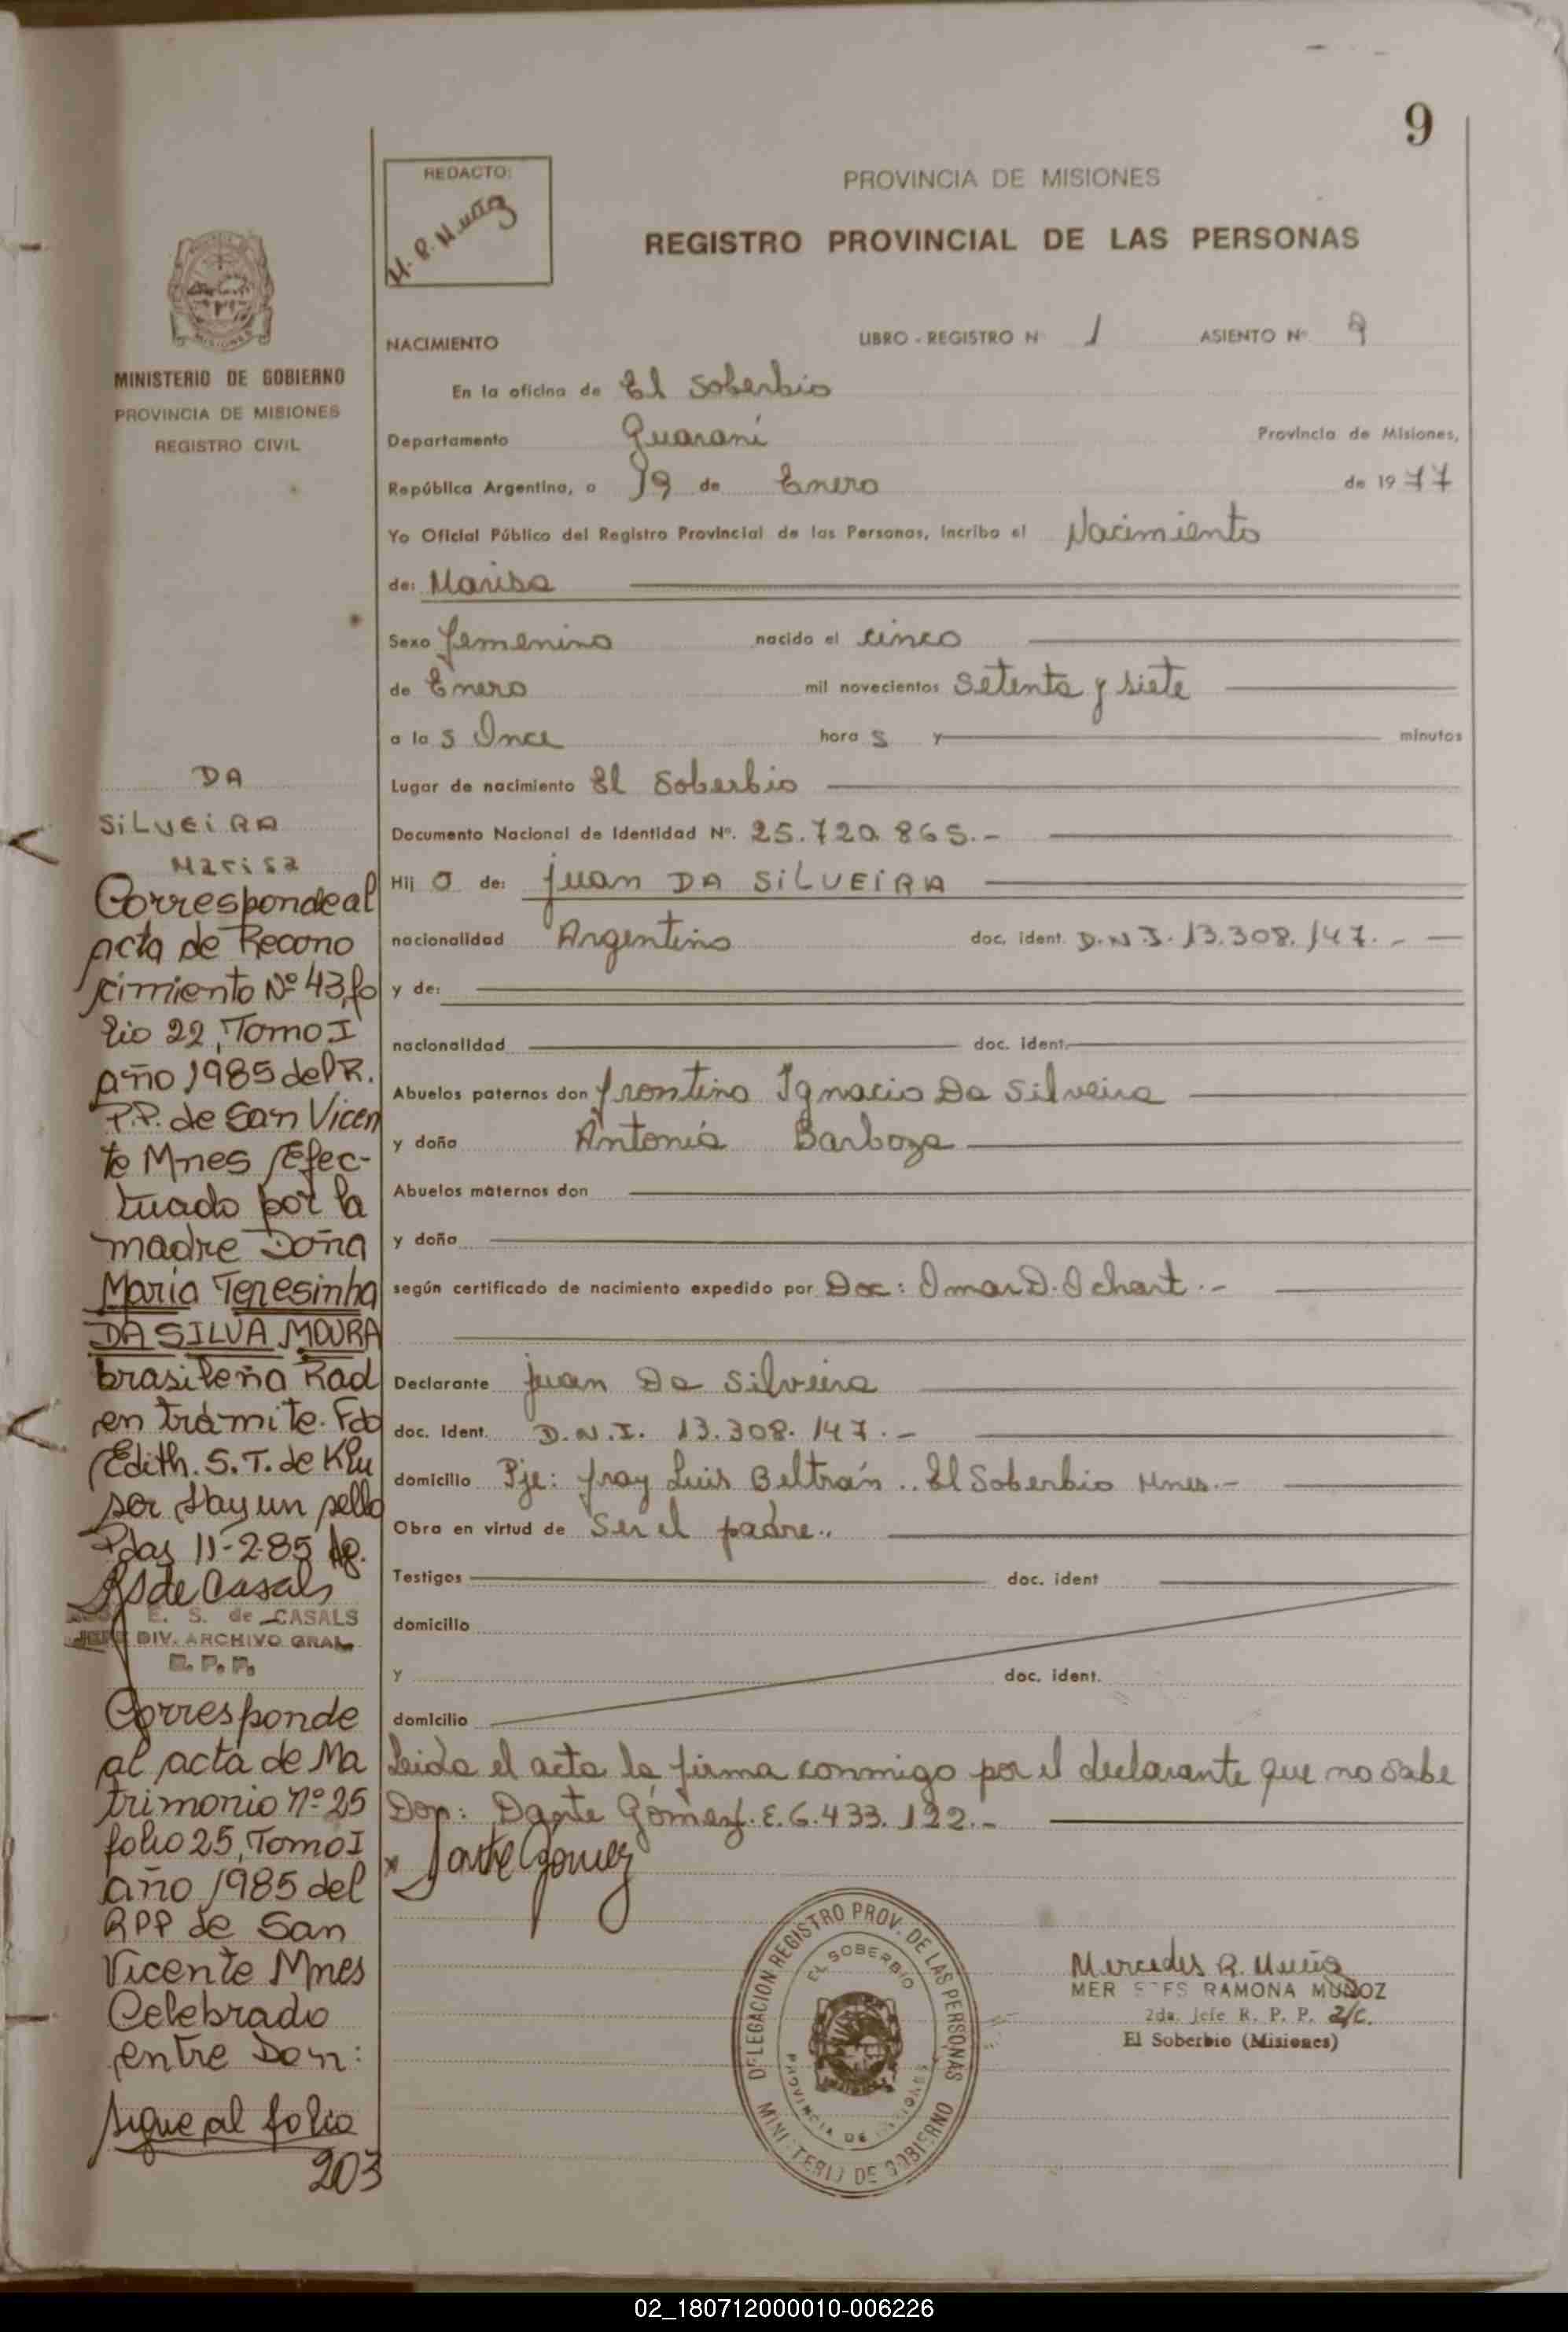 9
REDACTO:
M. R. Muñoz
PROVINCIA DE MISIONES
REGISTRO PROVINCIAL DE LAS PERSONAS
MISIONES
MINISTERIO DE GOBIERNO
PROVINCIA DE MISIONES
REGISTRO CIVIL
NACIMIENTO LIBRO - REGISTRO Nº 1 ASIENTO Nº 9
En la oficina de El Soberbio
Departamento Guaraní Provincia de Misiones,
República Argentina, a 19 de Enero de 1977
Yo Oficial Público del Registro Provincial de las Personas, incribo el Nacimiento
de: Marisa
Sexo femenino nacido el cinco
de Enero mil novecientos Setenta y siete
a la s Once hora s y minutos
Lugar de nacimiento El Soberbio
Documento Nacional de Identidad Nº. 25.720.865.-
Hij a de: Juan DA SiLVEiRA
nacionalidad Argentino doc. ident. D.N.I. 13.308.147.-
y de:
nacionalidad doc. ident.
Abuelos paternos don frontino Ignacio Da Silveira
y doña Antonia Barboza
Abuelos maternos don
y doña
según certificado de nacimiento expedido por Doc: Omar D. Ochart.-
Declarante Juan Da Silveira
doc. ident. D.N.I. 13.308.147.-
domicilio Pje: fray Luis Beltrán.. El Soberbio Mnes.-
Obra en virtud de Ser el padre..
Testigos doc. ident
domicilio
y doc. ident.
domicilio
Leida el acta la firma conmigo por el declarante que no sabe
Don: Dante Gómez L.E. 6.433.122.-
x Dante Gomez
DELEGACION REGISTRO PROV. DE LAS PERSONAS
MINISTERIO DE GOBIERNO
EL SOBERBIO
PROVINCIA DE MISIONES
Mercedes R. Muñoz
MERCEDES RAMONA MUÑOZ
2da. Jefe R. P. P. a/c.
El Soberbio (Misiones)
DA
SiLVEiRA
Marisa
Corresponde al
acta de Recono
cimiento Nº 43, fo
lio 22, Tomo I
año 1985 del R.
P.P. de San Vicen
te Mnes Efec-
tuado por la
madre Doña
Maria Teresinha
DA SILVA MOURA
brasileña Rad
en trámite. Fdo
Edith. S. T. de Klu
ser Hay un sello
Pdas 11-2-85
ES de Casals
E. S. de CASALS
JEFE DIV. ARCHIVO GRAL.
R. P. P.
Corresponde
al acta de Ma
trimonio nº 25
folio 25, Tomo I
año 1985 del
RPP de San
Vicente Mnes
Celebrado
entre Don:
sigue al folio
203
02_180712000010-006226